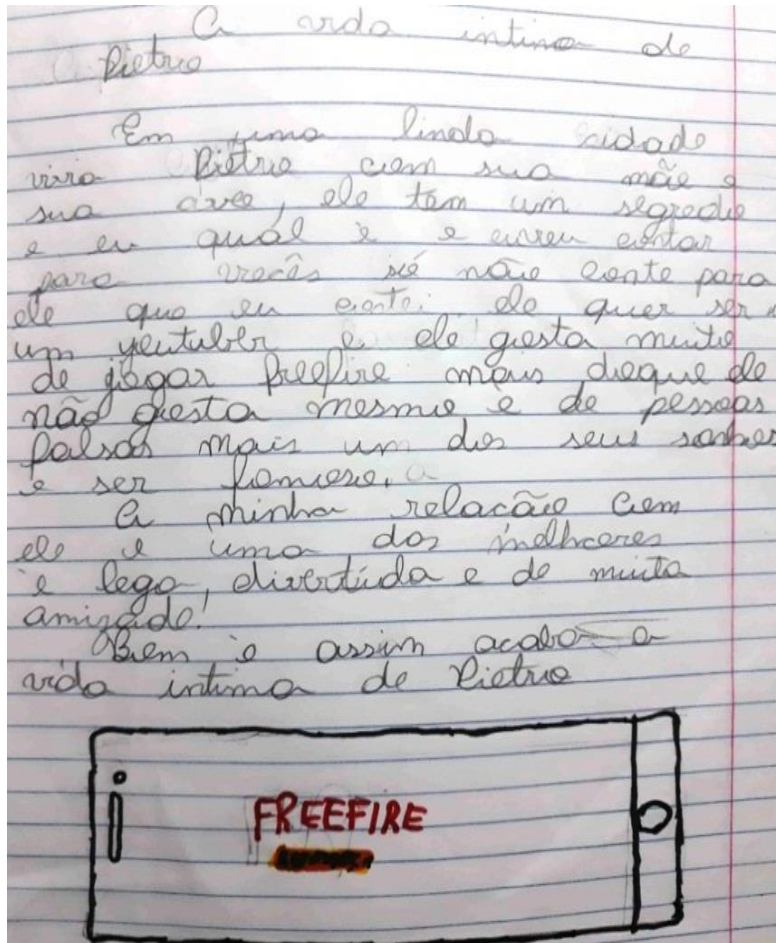 A vida intima de
Pietro
Em uma linda cidade
vivia Pietro com sua mãe e
sua avó, ele tem um segredo
e eu quál è e eu vou contar
para vocês só não conte para
ele que eu conte: ele quer ser
um youtuber e ele gosta muito
de jogar freefire mais doque ele
não gosta mesmo e de pessoas
falsas mais um dos seus sonhos
é ser famoso.
A minha relacão com
ele e uma das melhores
é lega, divertida e de muita
amizade!
Bem é assim acaba a
vida intima de Pietro
FREEFIRE